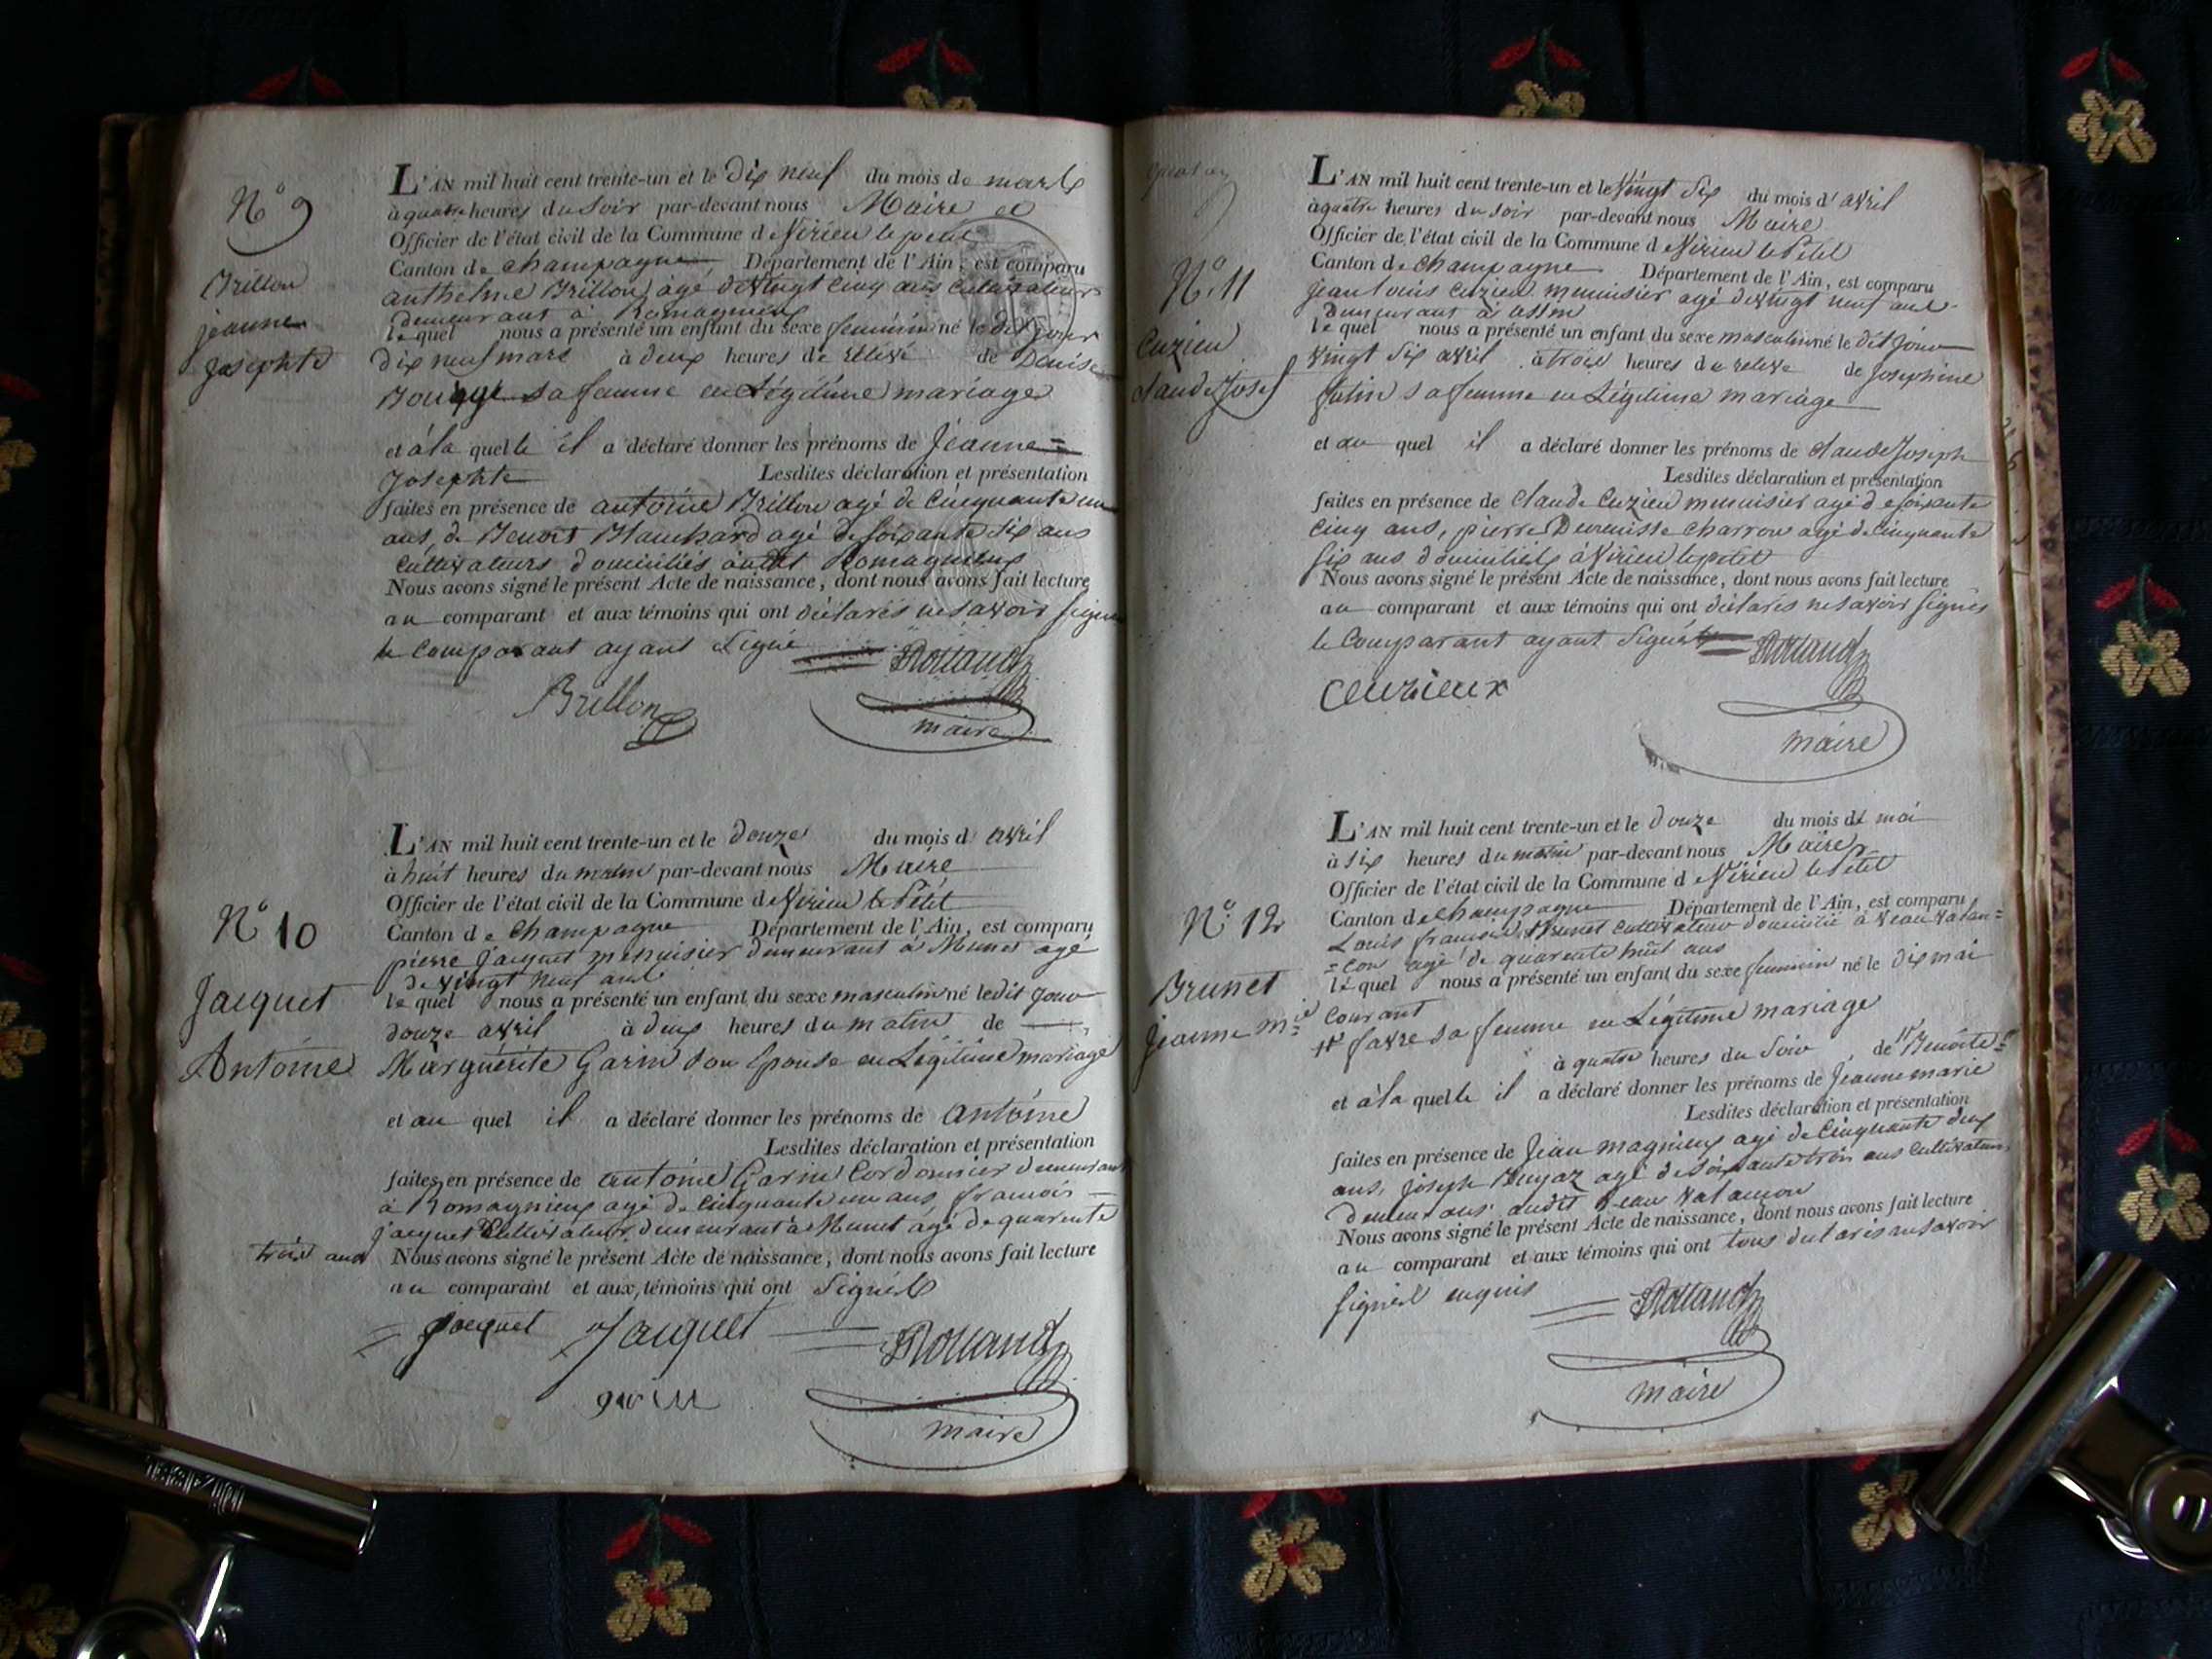 N° 9
Brillon
jeanne
Josephte
L'AN mil huit cent trente-un et le dix neuf du mois de mars
à quatre heures du soir par-devant nous Maire et
Officier de l'état civil de la Commune d Virieu le petit
Canton de champagne Département de l'Ain, est comparu
anthelme Brillon, agé de vingt cinq ans cultivateur
demeurant à Romagnieu
lequel nous a présenté un enfant du sexe feminin né le dit jour
dix neuf mars à deux heures de relevé de Denise
sa femme en Légitime mariage
et à la quelle il a déclaré donner les prénoms de Jeanne=
Josephte Lesdites déclaration et présentation
faites en présence de antoine Brillon agé de Cinquante un
ans, de Benoit Blanchard agé de soixante six ans
cultivateurs domiciliés audit Romagnieux
Nous avons signé le présent Acte de naissance, dont nous avons fait lecture
au comparant et aux témoins qui ont déclarés ne savoir signer
le comparant ayant Signé Rolland
Brillon
maire
N° 10
Jacquet
Antoine
L'AN mil huit cent trente-un et le douze du mois d avril
à huit heures du matin par-devant nous Maire
Officier de l'état civil de la Commune d Virieu le Petit
Canton de Champagne Département de l'Ain, est comparu
pierre Jacquet menuisier demeurant à Munet agé
de vingt neuf ans
lequel nous a présenté un enfant du sexe masculin né ledit Jour
douze avril à deux heures du matin de
Marguerite Garin son Epouse en Légitime mariage
et au quel il a déclaré donner les prénoms de antoine
Lesdites déclaration et présentation
faites en présence de antoine Garin Cordonnier demeurant
à Romagnieux agé de cinquante un ans, francois
jacquet Cultivateur demeurant à Munet âgé de quarente
trois ans Nous avons signé le présent Acte de naissance, dont nous avons fait lecture
au comparant et aux témoins qui ont Signés
jacquet Jacquet Rolland
garin
maire
N° 11
Cuzieu
claude Josef
L'AN mil huit cent trente-un et le Vingt Six du mois d' avril
à quatre heures du soir par-devant nous Maire
Officier de l'état civil de la Commune d Virieu le Petit
Canton de Champagne Département de l'Ain, est comparu
jean louis Cuzieu menuisier agé de vingt neuf ans
demeurant à assin
lequel nous a présenté un enfant du sexe masculin né le dit Jour
vingt Six avril à trois heures de releve de Josephine
sa femme en Légitime mariage
et au quel il a déclaré donner les prénoms de claude Joseph
Lesdites déclaration et présentation
faites en présence de claude Cuzieu menuisier agé de soixante
cinq ans, pierre charron agé de Cinquante
six ans domiciliés à Virieu le petit
Nous avons signé le présent Acte de naissance, dont nous avons fait lecture
au comparant et aux témoins qui ont déclarés ne savoir signés
le Comparant ayant Signé Rolland
Cuzieux
maire
N° 12
Brunet
Jeanne Mie
L'AN mil huit cent trente-un et le douze du mois de mai
à six heures du matin par-devant nous Maire
Officier de l'état civil de la Commune d Virieu le Petit
Canton de Champagne Département de l'Ain, est comparu
Louis francois Brunet cultivateur domicilié à veau valan=
=con agé de quarente huit ans
lequel nous a présenté un enfant du sexe feminin né le dix mai
courant
favre sa femme en Légitime mariage
à quatre heures du Soir de Benoite
et à la quelle il a déclaré donner les prénoms de Jeanne marie
Lesdites déclaration et présentation
faites en présence de Jean magnieux agé de Cinquante deux
ans, joseph Bugaz agé de soixante trois ans cultivateurs
demeurans audit veau valancon
Nous avons signé le présent Acte de naissance, dont nous avons fait lecture
au comparant et aux témoins qui ont tous declarés ne savoir
signés enquis Rolland
maire